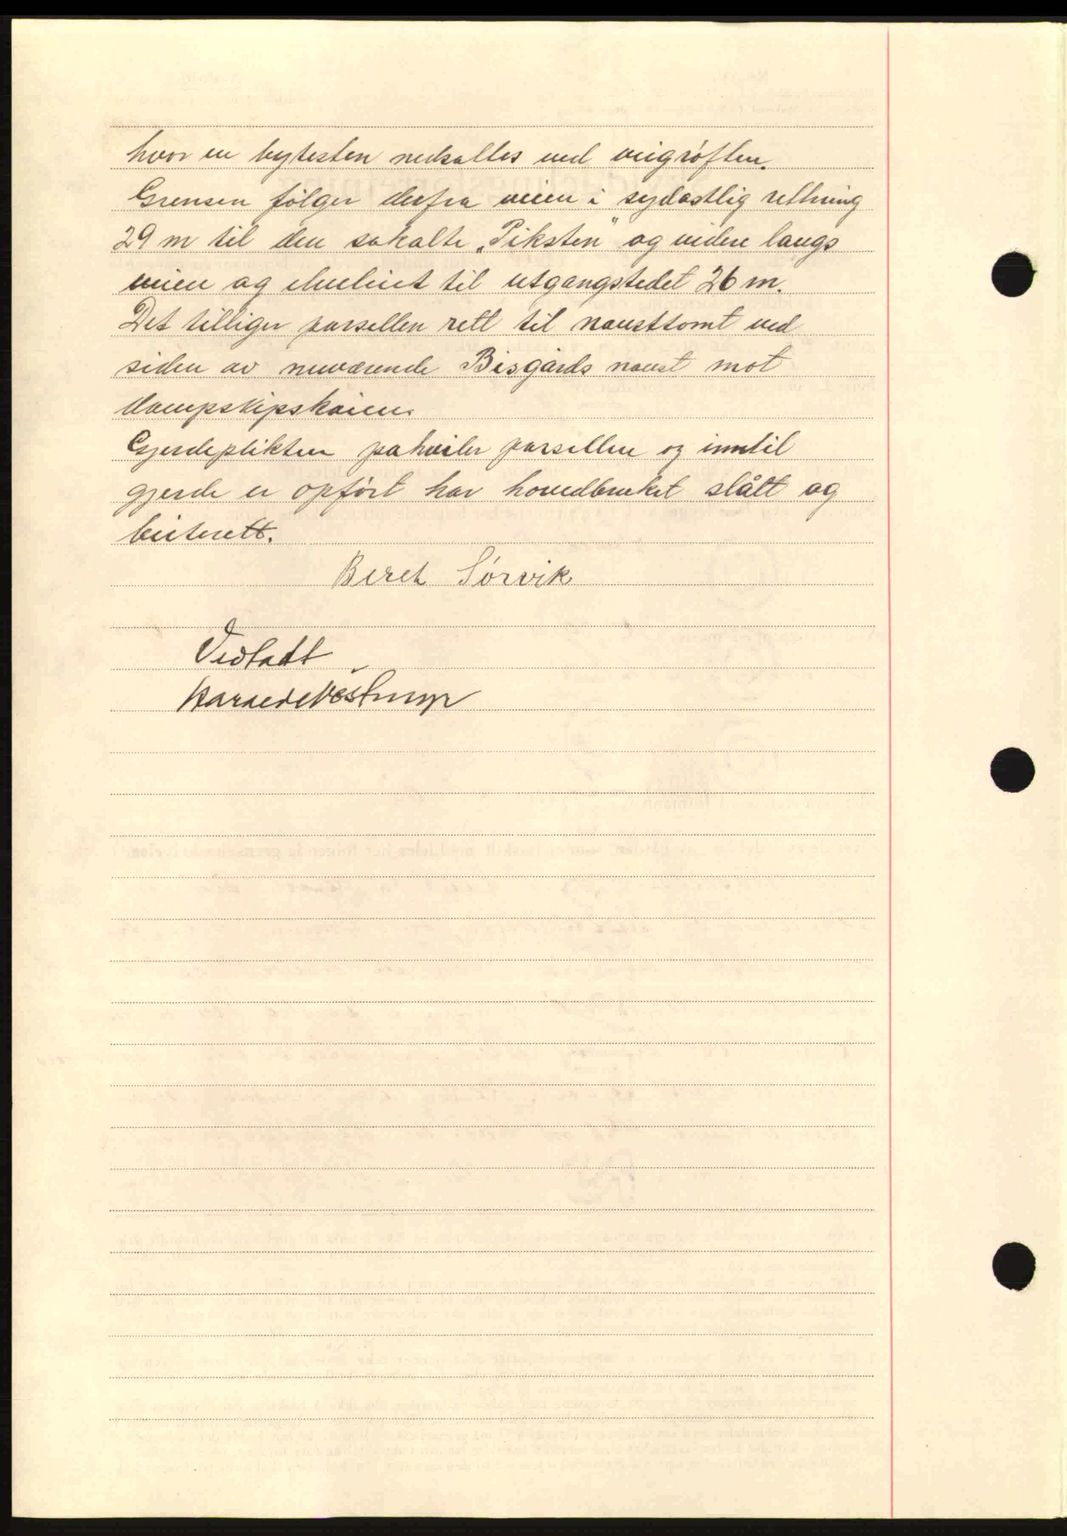 hvor en bytesten nedsattes ved veigrøften.
Grensen følger derfra veien i sydøstlig rettning
29 m til den sakalte „Piksten" og videre langs
veien og elveleiet til utgangstedet 26 m.
Det tilligger parsellen rett til nausttomt ved
siden av nuværende Bisgårds naust mot
dampskipskaien.
Gjerdeplikten pahviler parsellen og inntil
gjerde er opført har hovedbruket slått og
beiterett.
Beret Sørvik
Vedtadt